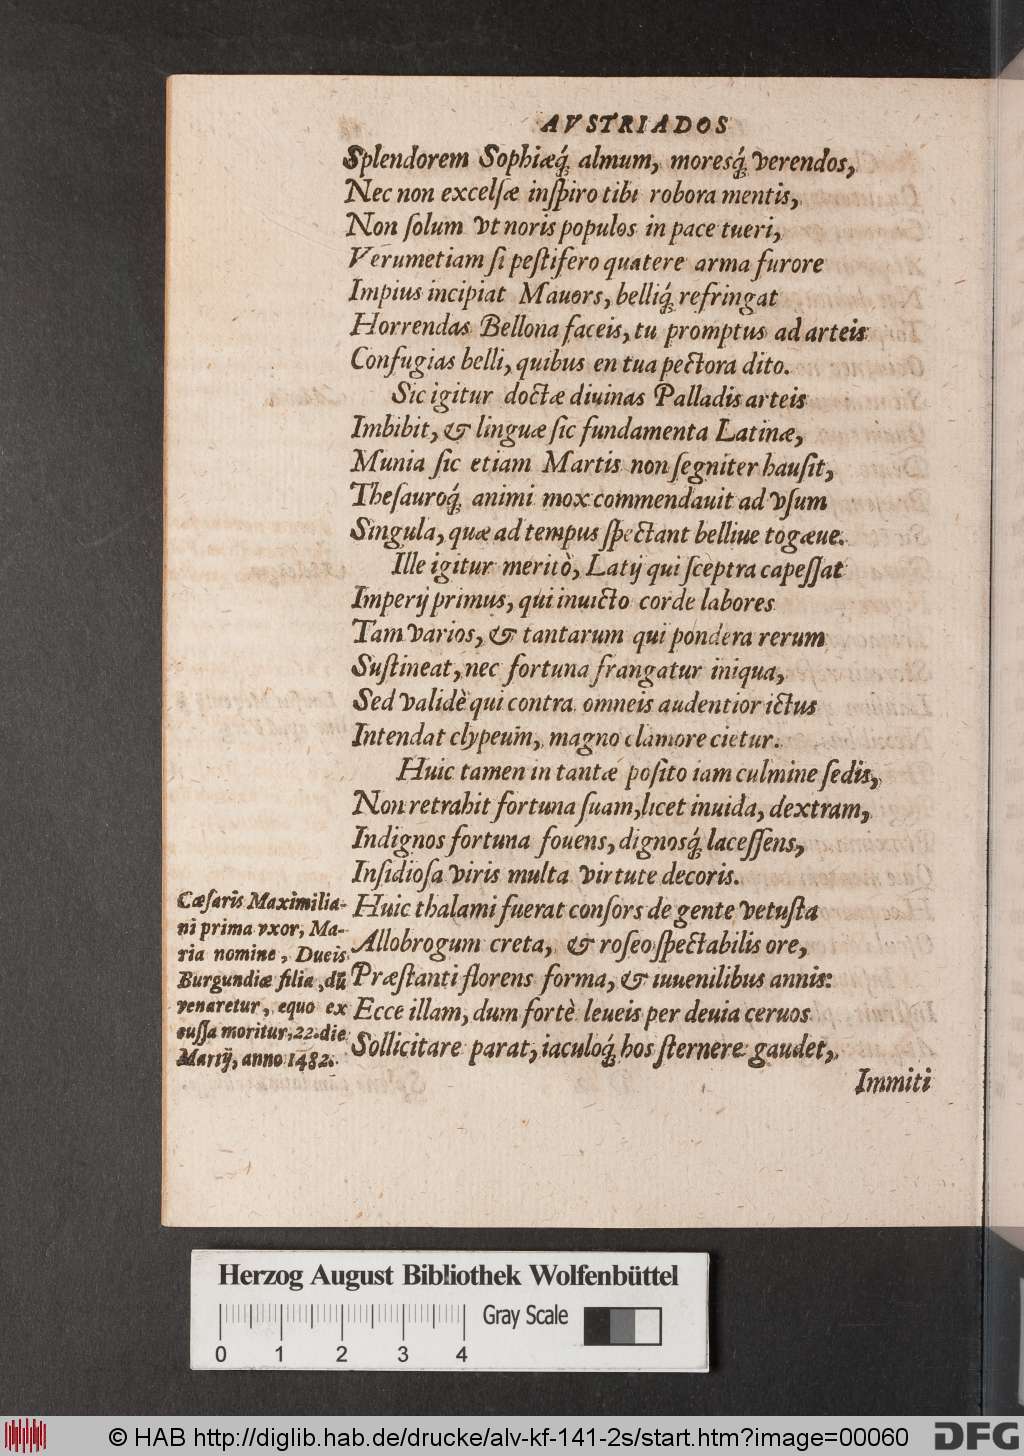 AVSTRIADOS
Splendorem Sophiæq́; almum, moresq́; verendos,
Nec non excelſæ inſpiro tibi robora mentis,
Non ſolum vt noris populos in pace tueri,
Verumetiam ſi peſtifero quatere arma furore
Impius incipiat Mauors, belliq́; refringat
Horrendas Bellona faceis, tu promptus ad arteis
Confugias belli, quibus en tua pectora dito.
Sic igitur doctæ diuinas Palladis arteis
Imbibit, & linguæ ſic fundamenta Latinæ,
Munia ſic etiam Martis non ſegniter hauſit,
Theſauroq́; animi mox commendauit ad vſum
Singula, quæ ad tempus ſpectant belliue togæue.
Ille igitur meritò, Latij qui ſceptra capeſſat
Imperij primus, qui inuicto corde labores
Tam varios, & tantarum qui pondera rerum
Suſtineat, nec fortuna frangatur iniqua,
Sed validè qui contra omneis audentior ictus
Intendat clypeum, magno clamore cietur.
Huic tamen in tantæ poſito iam culmine ſedis,
Non retrahit fortuna ſuam, licet inuida, dextram,
Indignos fortuna fouens, dignosq́; laceſſens,
Inſidioſa viris multa virtute decoris.
Huic thalami fuerat conſors de gente vetuſta
Allobrogum creta, & roſeo ſpectabilis ore,
Præſtanti florens forma, & iuuenilibus annis:
Ecce illam, dum fortè leueis per deuia ceruos
Sollicitare parat, iaculoq́; hos ſternere gaudet,
Immiti
Cæſaris Maximilia-
ni prima vxor, Ma-
ria nomine, Ducis
Burgundiæ filia, dū
venaretur, equo ex
cuſſa moritur, 22. die
Martij, anno 1482.
Herzog August Bibliothek Wolfenbüttel
Gray Scale
0 1 2 3 4
© HAB http://diglib.hab.de/drucke/alv-kf-141-2s/start.htm?image=00060
DFG